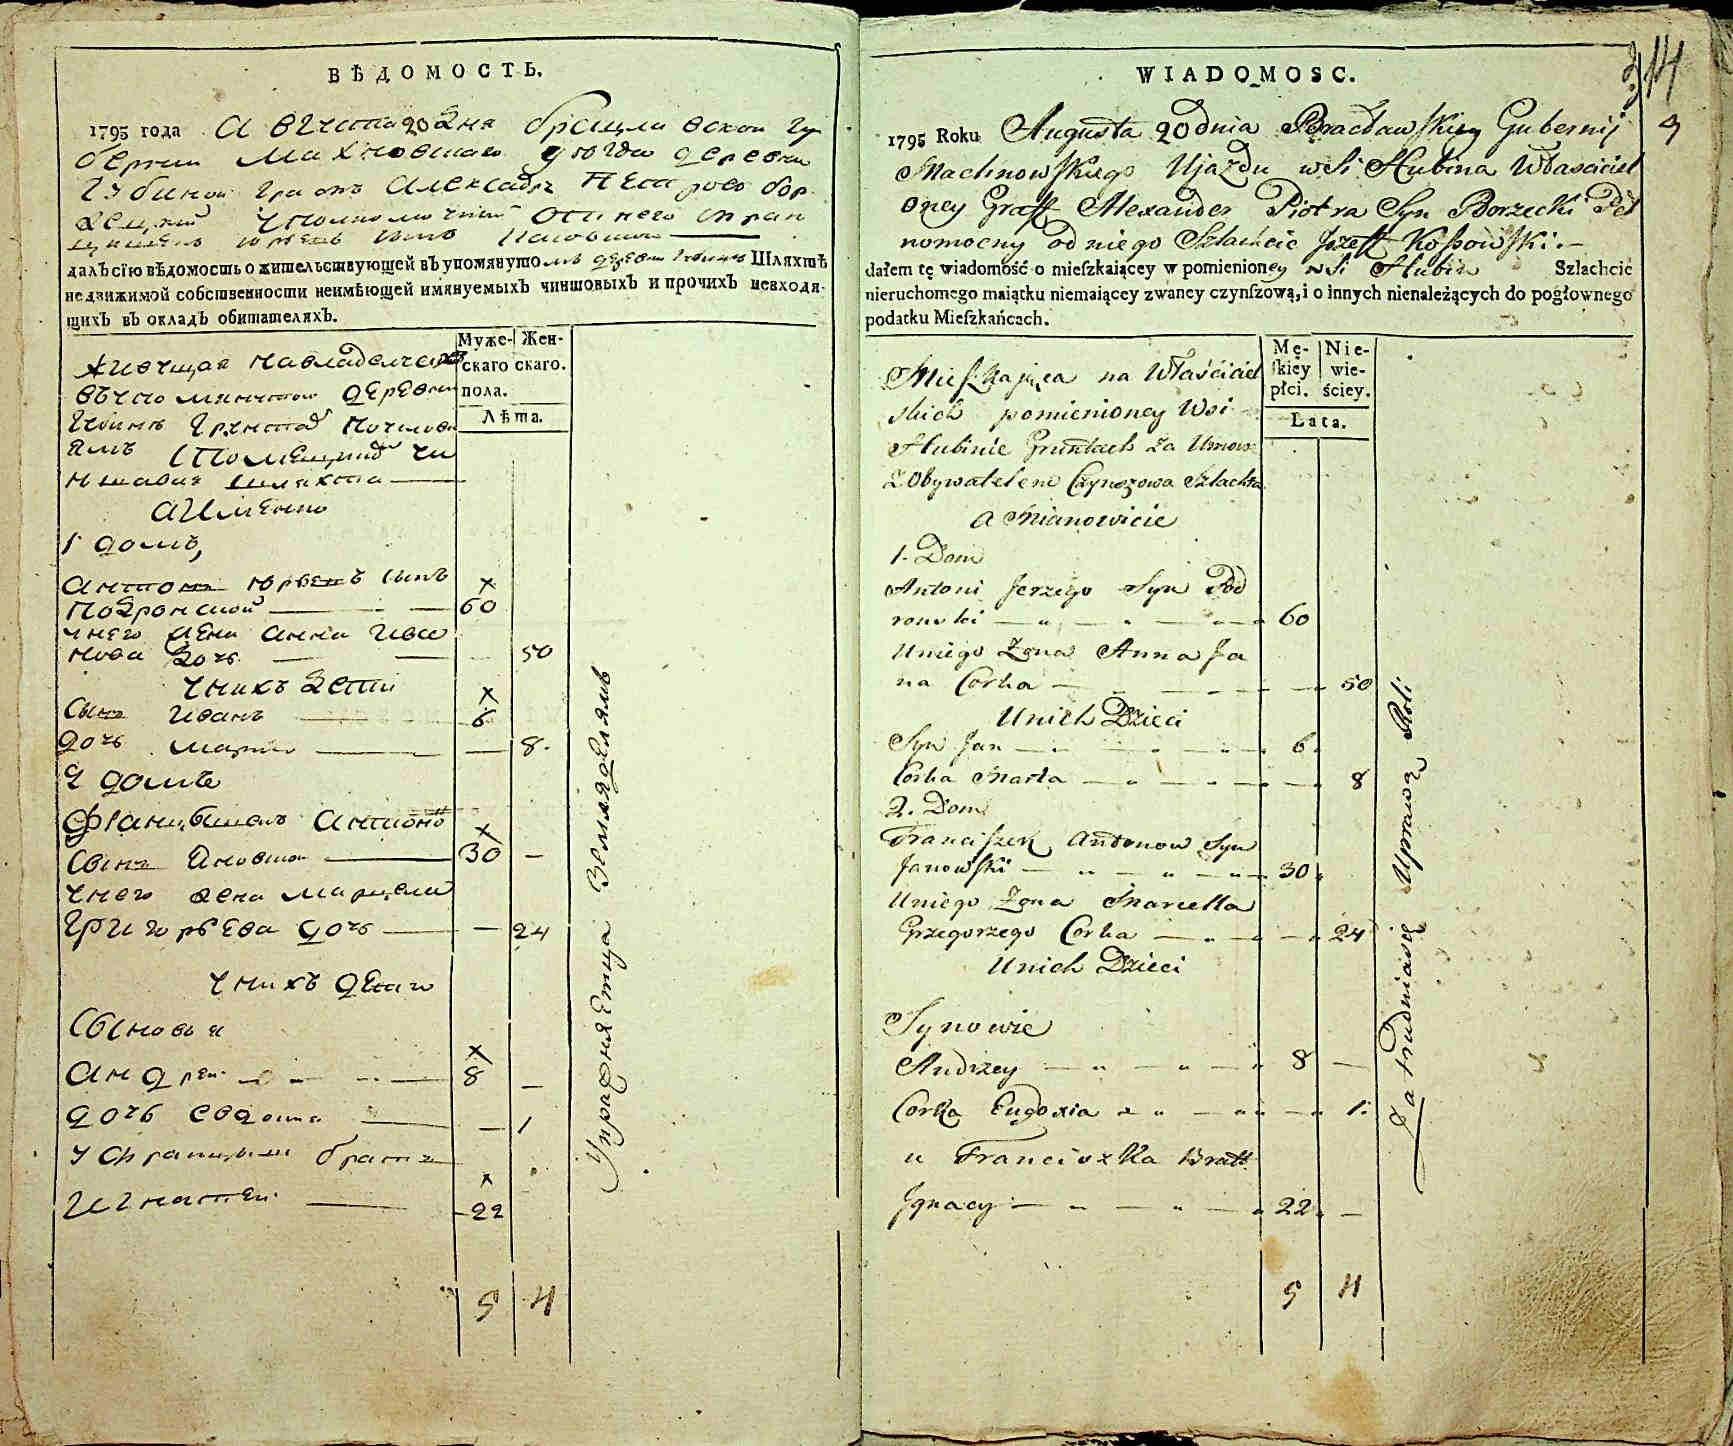 ВѢДОМОСТЬ.
1795 года Августа 20 дня Брацлавской Гу
берніи Махновскаго уезда деревни
Губиной Графъ Александръ Петровъ
уполномоченный
далъ сію вѣдомость о жительствующей въ упомянуто Шляхтѣ
недвижимой собственности неимѣющей имянуемыхъ чиншовыхъ и прочихъ невходя-
щихъ въ окладъ обитателяхъ.
Муже- Жен-
скаго скаго.
пола.
Лѣта.
живущая на владелческ
деревни
шляхта
а именно
1 домъ,
Антонъ Юрьевъ сынъ
Подронской 60
у него жена Анна Ива
нова дочь 50
у нихъ дети
сынъ Иванъ 6
дочь Марта 8
2 домъ
Францышекъ Антоно
сынъ Яновски 30
у него жена Марцела
Григорьева дочь 24
у нихъ дети
сыновья
Андреи 8
дочь Евдокия 1
у Францышка братъ
Игнатеи 22
5 4
Упражняетца Земляделямъ
WIADOMOSC.
14
9
1795 Roku Augusta 20 dnia Bracławskiey Gubernij
Machnowskiego Ujazdu wsi Hubina Własciciel
oney Graff Alexander Piotra Syn Borzecki Peł
nomocny od niego Szlachcic Jozeff Kossowski.—
dałem tę wiadomość o mieſzkaiącey w pomienioney wsi Hubin Szlachcic
nieruchomego maiątku niemaiącey zwaney czynſzową, i o innych nienależących do pogłownego
podatku Mieſzkańcach.
Mę- Nie-
ſkiey wie-
płci. ściey.
Lata.
Mieszkająca na Właściciel
skich pomienioney Wsi
Hubinie Gruntach za Umow
z Obywatelem Czynszowa Szlachta
a Mianowicie
1. Dom
Antoni Jerzego Syn Pod
ronski 60
Uniego Żona Anna Ja
na Corka 50
Unich Dzieci
Syn Jan 6
Corka Marta 8
2. Dom
Franciszek Antonow Syn
Janowski 30
Uniego Żona Marcella
Grzegorzego Corka 24
Unich Dzieci
Synowie
Andrzey 8
Corka Eugoxia 1.
u Franciszka Bratt
Jgnacy 22
5 4
Zatrudniasię Uprawą Roli